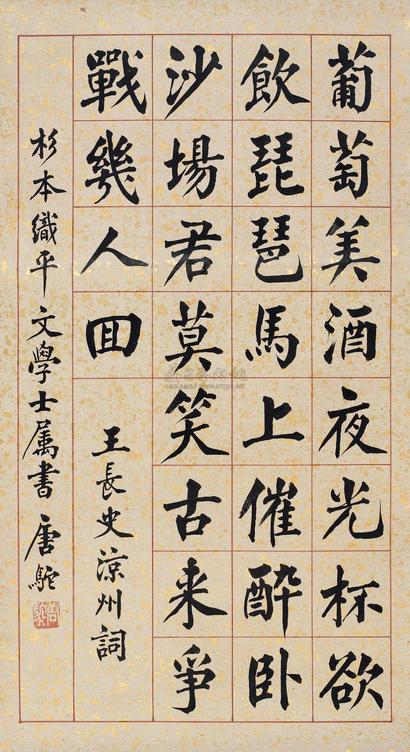 葡萄美酒夜光杯欲
飲琵琶馬上催醉卧
沙場君莫笑古来爭
戰幾人囬
王長史涼州詞
杉本織平文學士属書 唐駝